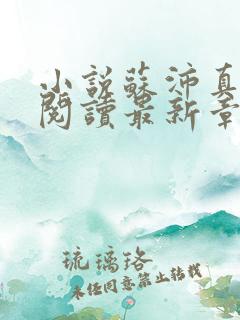 小說蘇沛真
閱讀最新章
琉璃珞
未经同意禁止转载